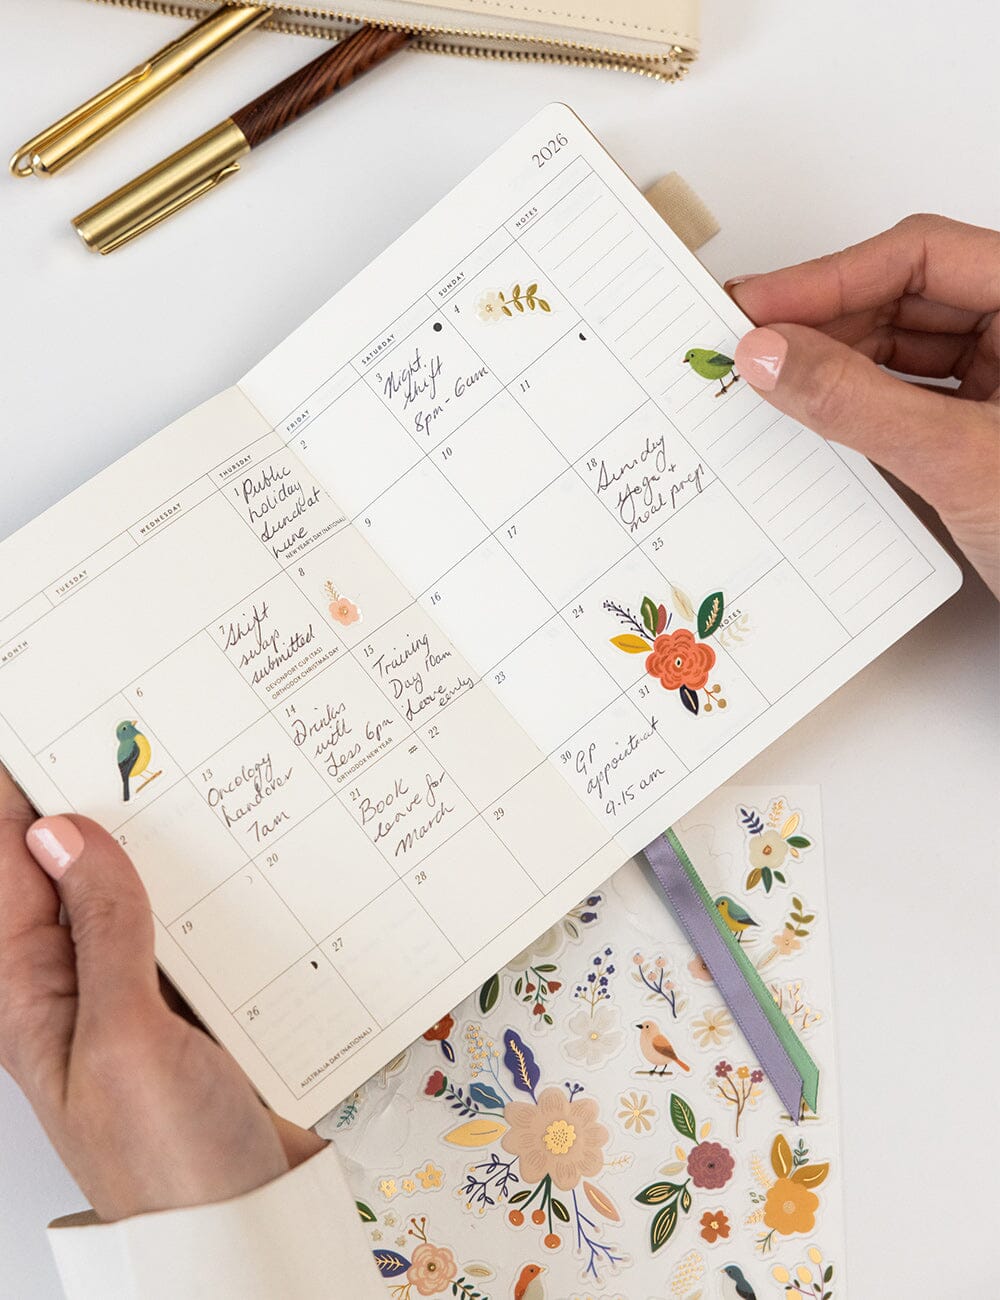 2026
MONTH
TUESDAY
WEDNESDAY
THURSDAY
FRIDAY
SATURDAY
SUNDAY
NOTES
1
Public
holiday
Lunch at
NEW YEAR'S DAY (NATIONAL)
2
3
Night
shift
8pm - 6am
4
5
6
7
Shift
swap
submitted
DEVONPORT CUP (TAS)
ORTHODOX CHRISTMAS DAY
8
9
10
11
2
13
Oncology
handover
7am
14
Drinks
with
Jess 6pm
ORTHODOX NEW YEAR
15
Training
Day 10am
Leave
early
16
17
18
Sunday
yoga +
meal prep
19
20
21
Book
leave for
March
22
23
24
25
26
AUSTRALIA DAY (NATIONAL)
27
28
29
30
GP
appointment
9.15 am
31
NOTES